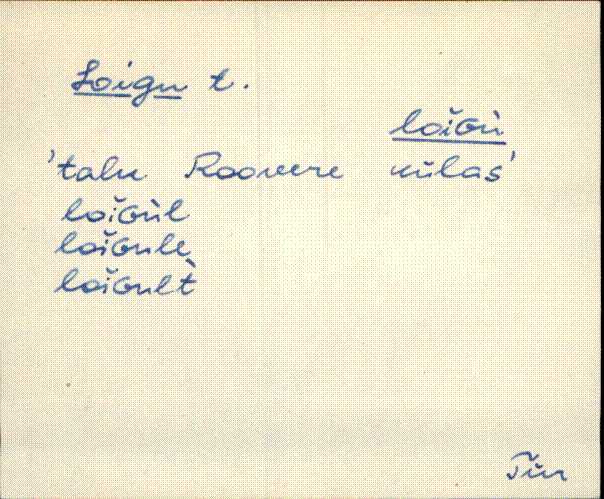 Loigu t.
loiGù
'talu Roovere külas'
loiGùl
loiGule
loiGult̀
Tür